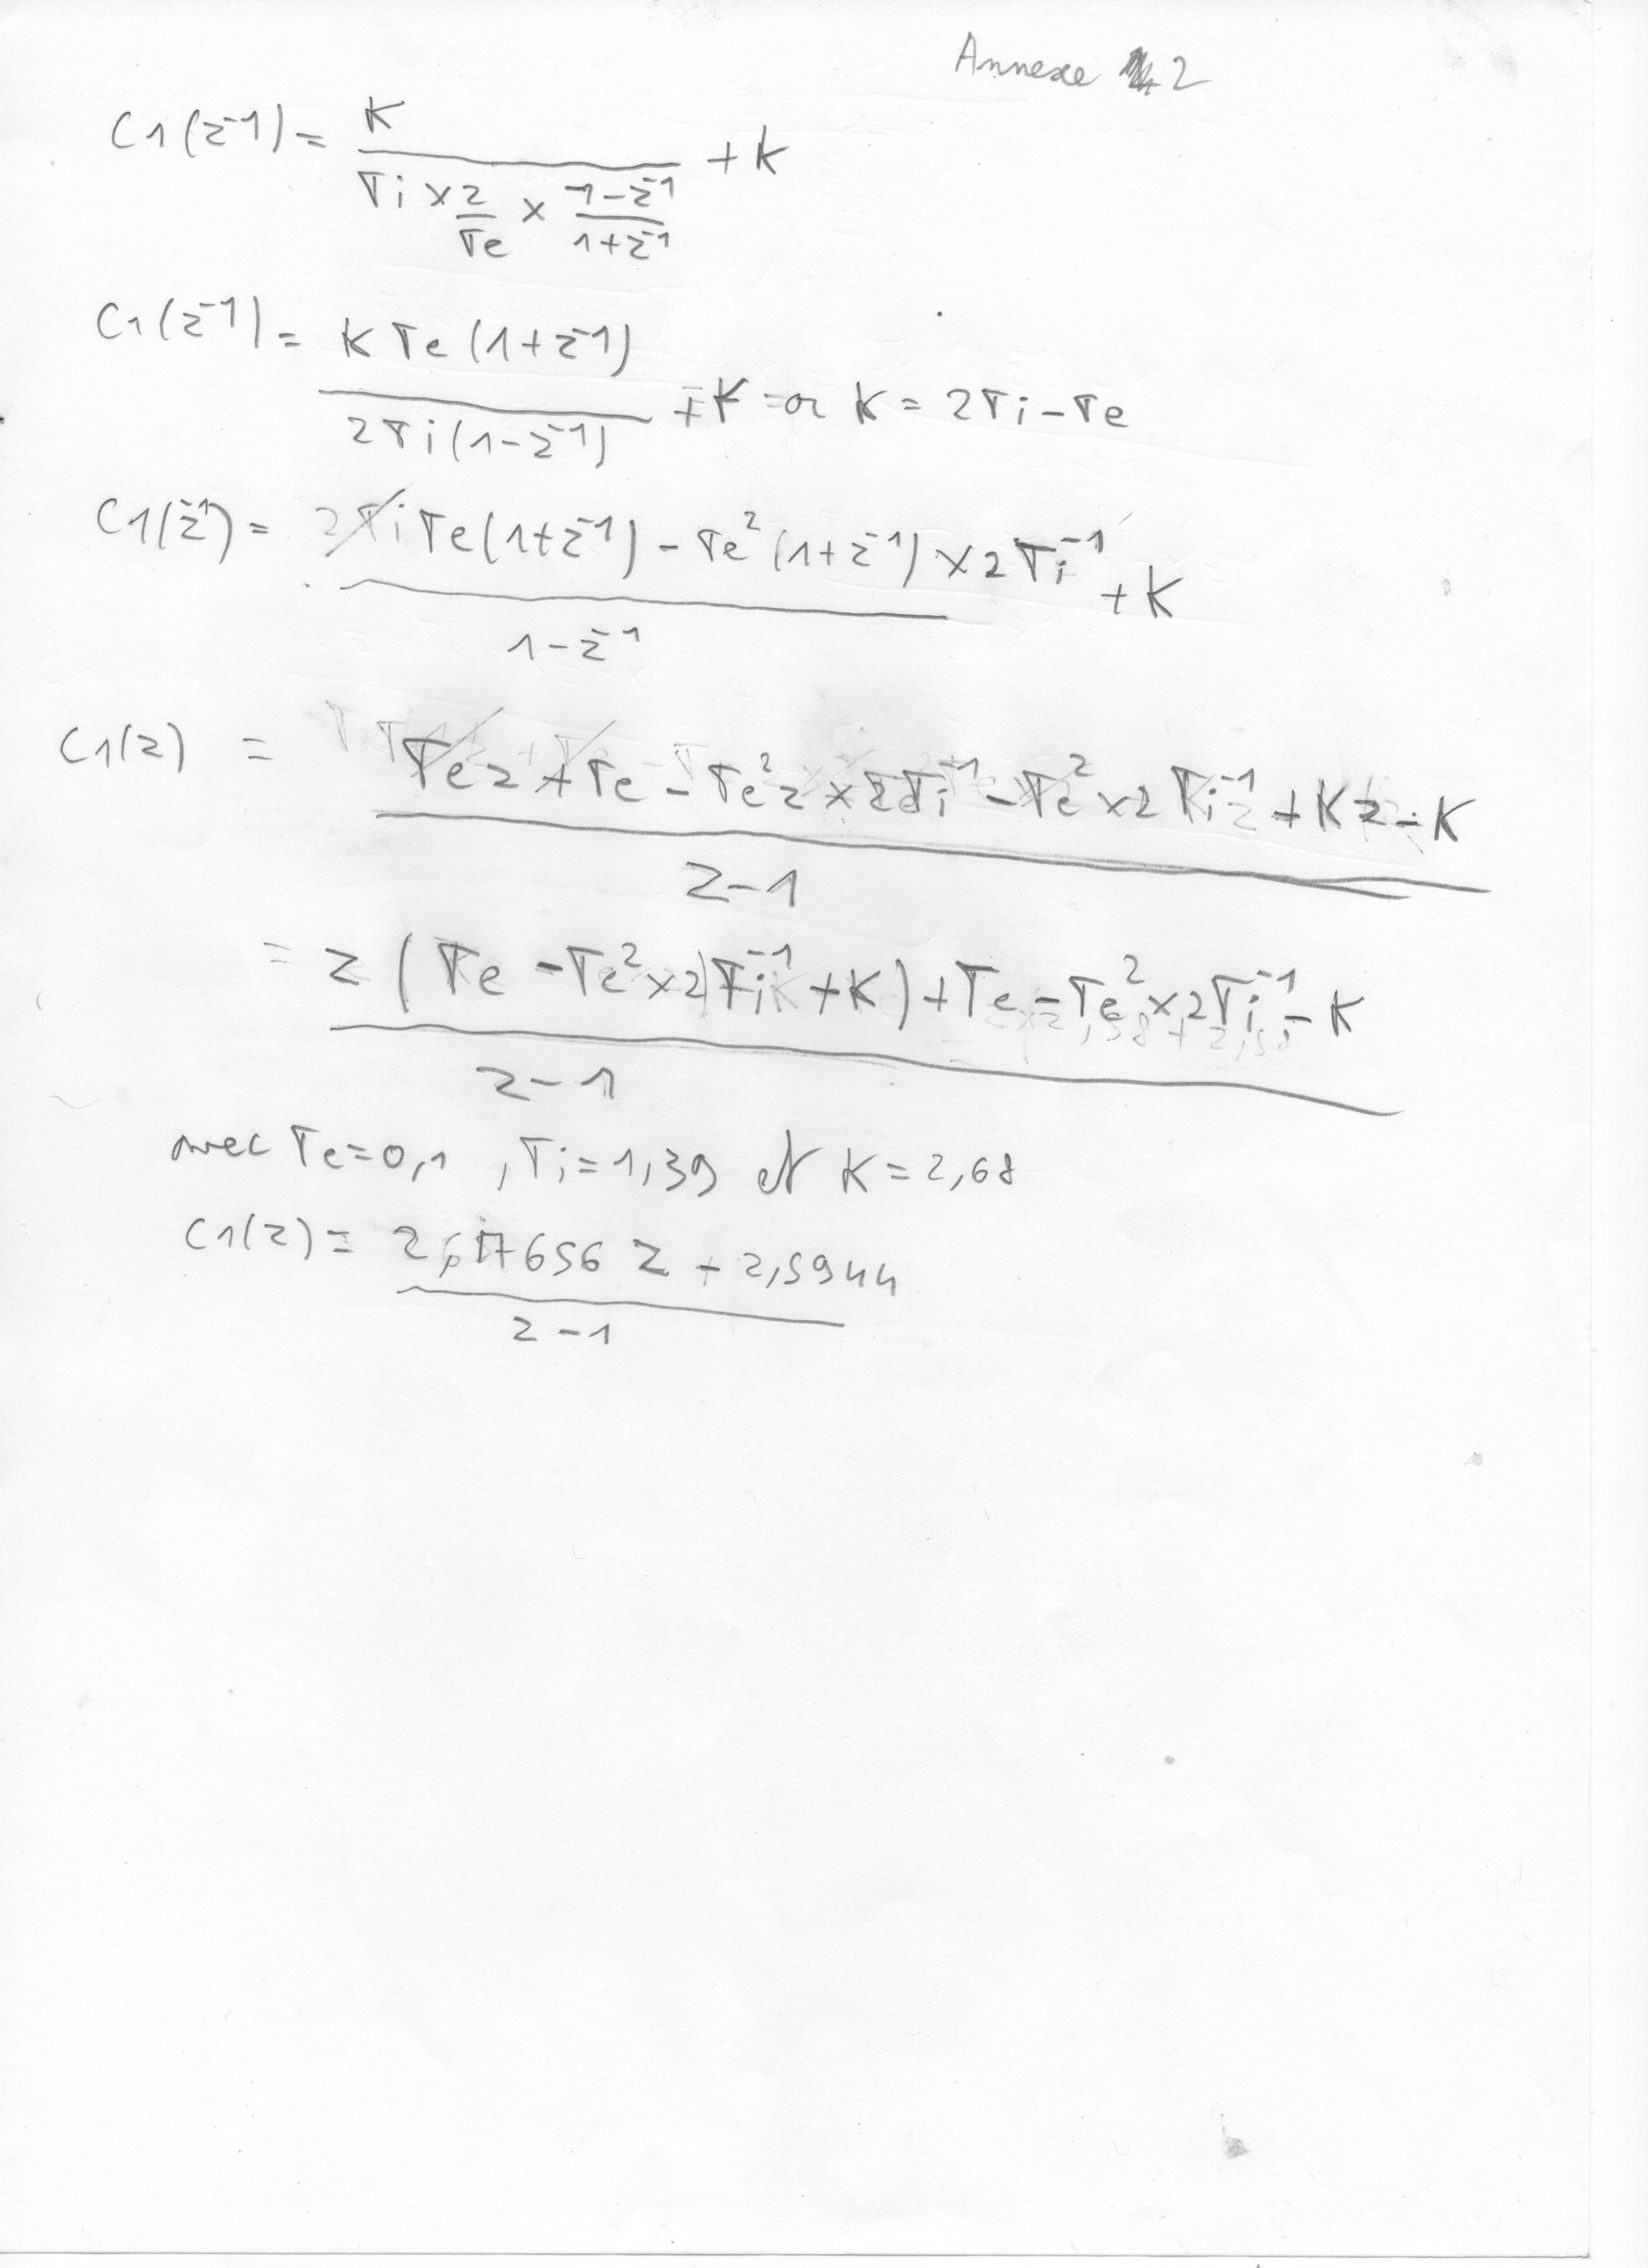 Annexe 2
C1(z^-1) = K / (Ti × 2/Te × (1-z^-1)/(1+z^-1)) + K
C1(z^-1) = K Te (1+z^-1) / (2Ti(1-z^-1)) + K or K = 2Ti - Te
C1(z^-1) = (2Ti Te(1+z^-1) - Te^2 (1+z^-1) × 2Ti^-1) / (1-z^-1) + K
C1(z) = (Te z + Te - Te^2 z × 2Ti^-1 - Te^2 × 2 Ti^-1 + Kz - K) / (z-1)
= (z (Te - Te^2 × 2 Ti^-1 + K) + Te - Te^2 × 2Ti^-1 - K) / (z-1)
avec Te=0,1 , Ti=1,39 et K=2,68
C1(z) = (2,617656 z - 2,5944) / (z-1)